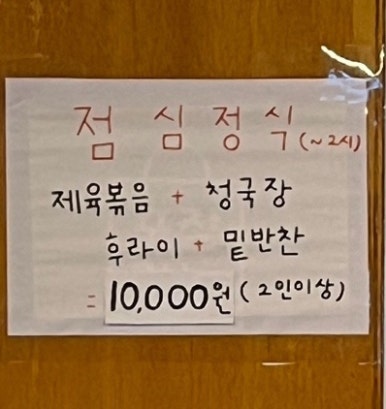 점심정식 (~2시)
제육볶음 + 청국장
후라이 + 밑반찬
= 10,000원 (2인이상)